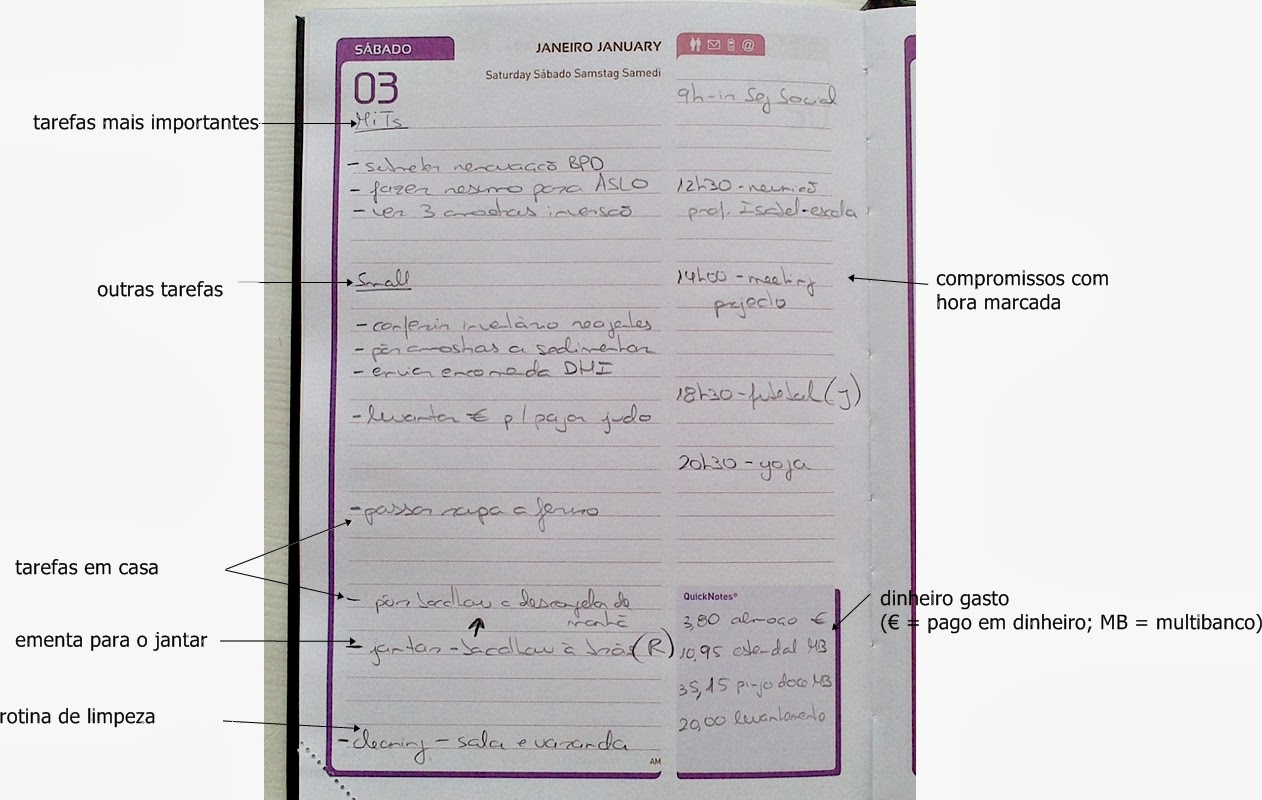 SÁBADO
JANEIRO JANUARY
Saturday Sábado Samstag Samedi
03
tarefas mais importantes
MiTs
- submeter renovação BPD
- fazer resumo para ASLO
- ler 3 amostras inversão
outras tarefas
Small
- conferir inventário reagentes
- pôr amostras a sedimentar
- enviar encomenda DHI
- levantar € p/ pagar judo
- passar roupa a ferro
tarefas em casa
- pôr bacalhau a descongelar de
manhã
ementa para o jantar
- jantar - bacalhau à brás (R)
rotina de limpeza
- cleaning - sala e varanda
AM
@
9h - ir Seg Social
12h30 - reunião
prof. Isabel - escola
14h00 - meeting
projecto
compromissos com
hora marcada
18h30 - futebol (J)
20h30 - yoga
QuickNotes®
3,80 almoço €
10,95 estendal MB
35,15 pingo doce MB
20,00 levantamento
dinheiro gasto
(€ = pago em dinheiro; MB = multibanco)